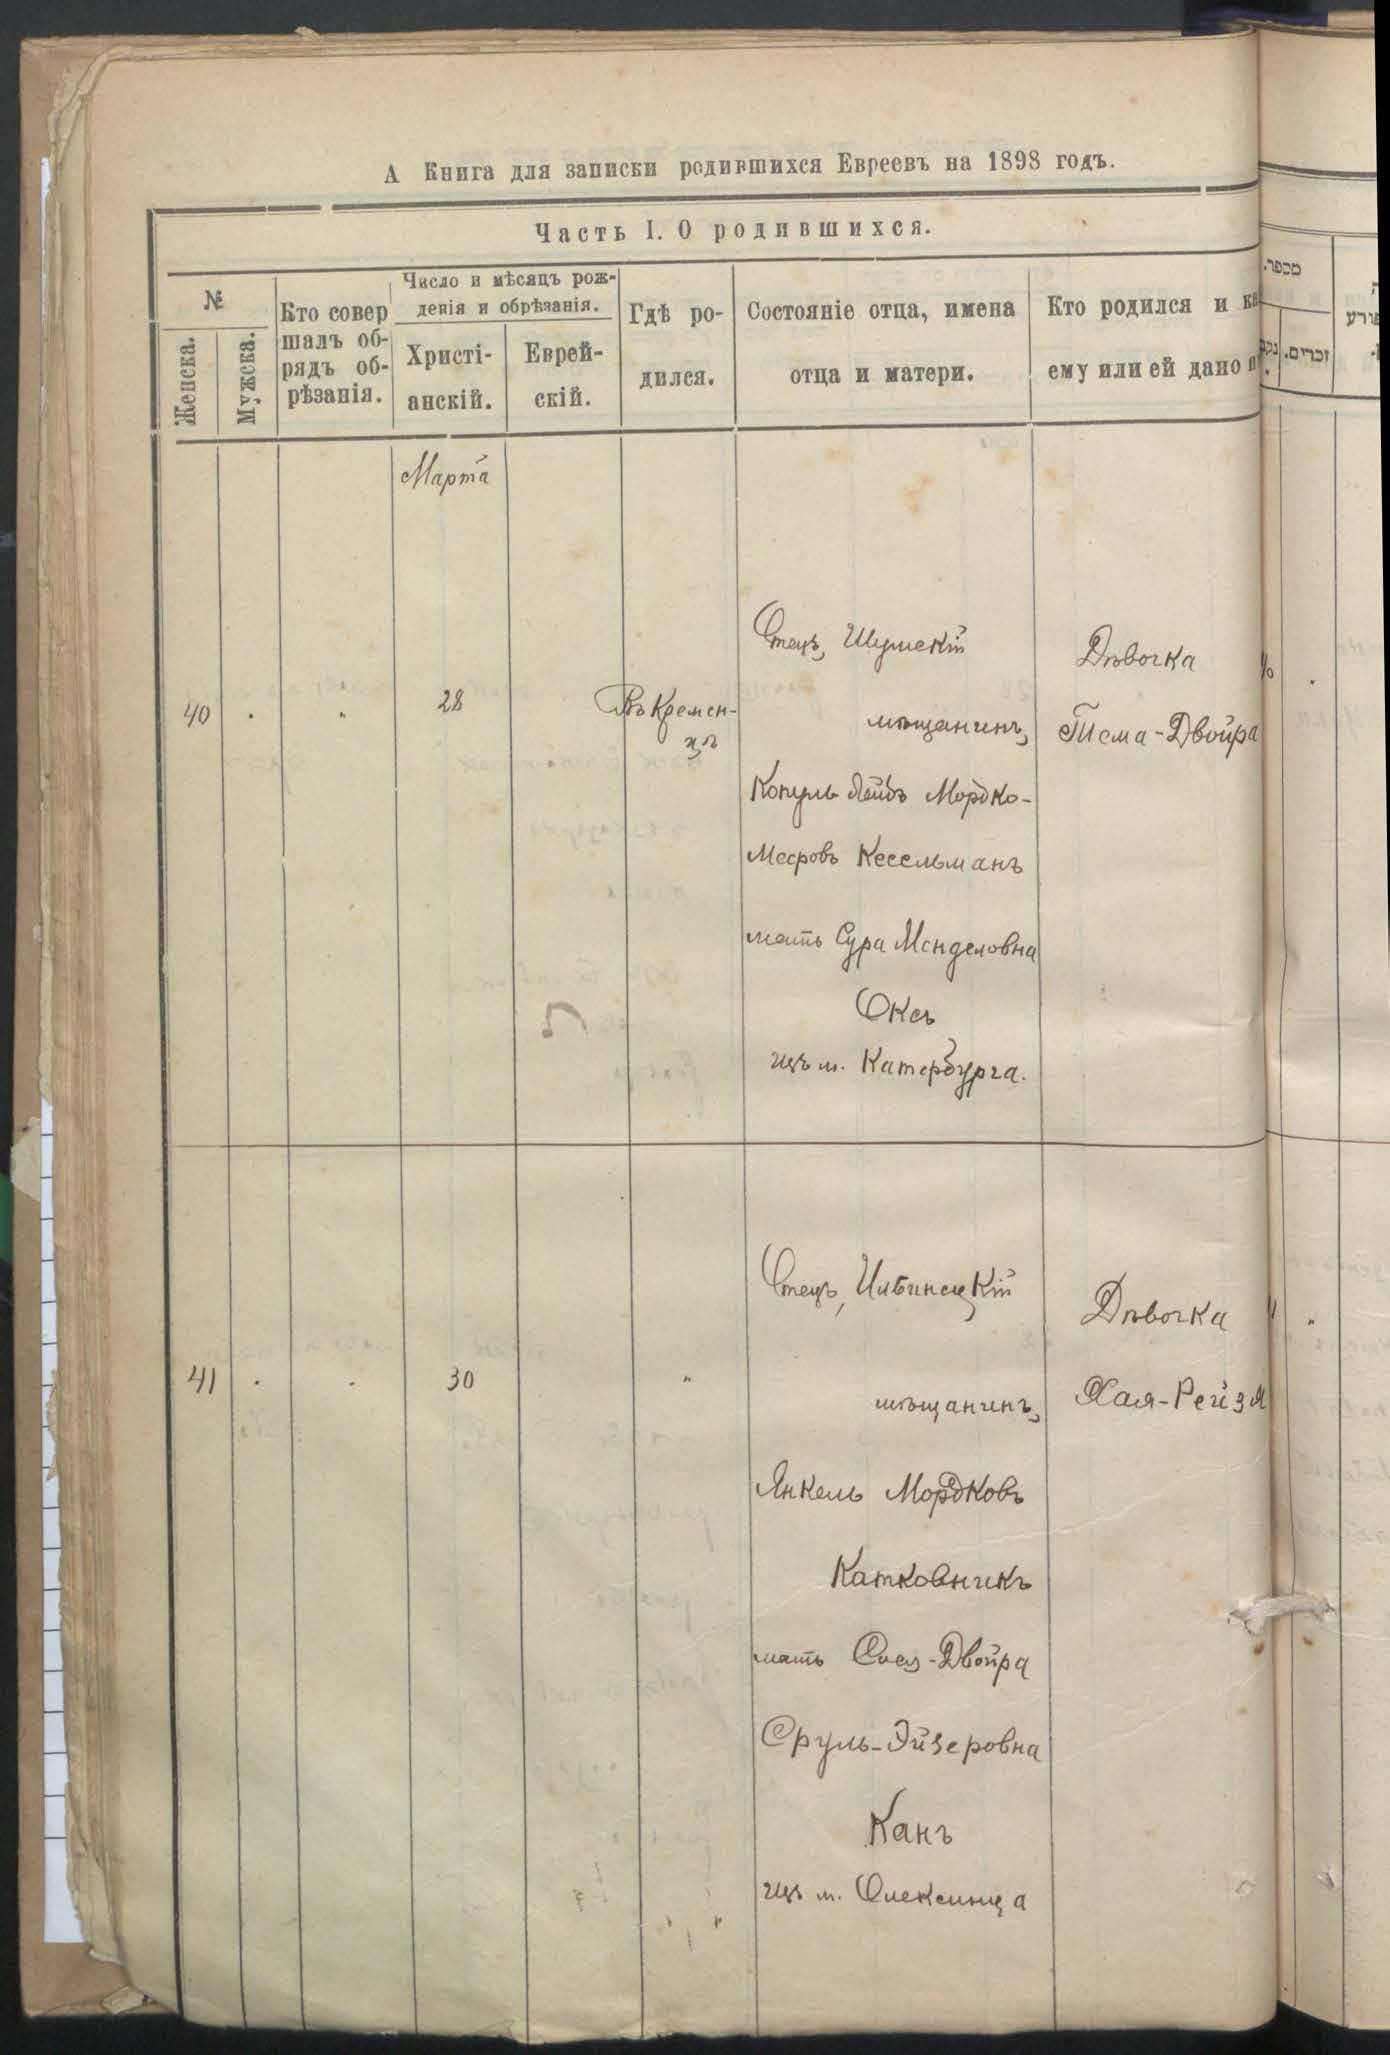 А Книга для записки родившихся Евреевъ на 1898 годъ.
Часть I. О родившихся.
№
Женска.
Мужска.
Кто совер
шалъ об-
рядъ об-
рѣзанія.
Число и мѣсяцъ рож-
денія и обрѣзанія.
Христі-
анскій.
Еврей-
скій.
Гдѣ ро-
дился.
Состояніе отца, имена
отца и матери.
Кто родился и
ему или ей дано
מספר.
זכרים.
Марта
40
28
Въ Кремен-
цѣ
Отецъ, Шумскій
мѣщанинъ,
Копуль Лейбъ Мордко-
Мееровъ Кесельманъ
мать Сура Менделовна
Оксъ
изъ м. Катербурга.
Дѣвочка
Тема-Двойра
41
30
"
Отецъ,
мѣщанинъ,
Янкель Мордковъ
Катковникъ
мать Двойра
Сруль-Эйзеровна
Канъ
изъ м. Олексинца
Дѣвочка
Хая-Рейзя